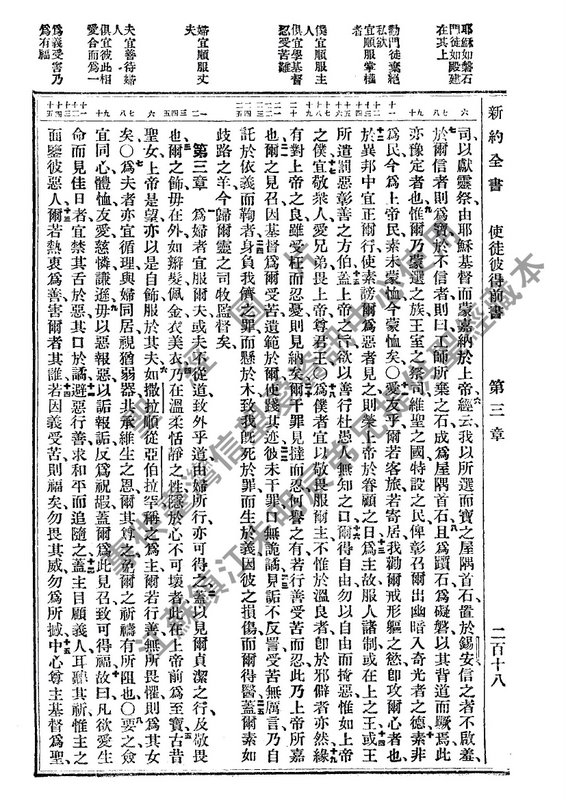 新約全書 使徒彼得前書 第三章 二百十八
耶穌如磐石
門徒如殿建
在其上
勸門徒棄絕
私欲
宜順服掌權
者
僕宜順服主
人
俱宜學基督
忍受苦難
婦宜順服丈
夫
夫宜善待婦
人
俱宜彼此相
愛合而為一
為義受害乃
為有福
司以獻靈祭由耶穌基督而蒙嘉納於上帝經云我以所選而寶之屋隅首石置於錫安信之者不啟羞
於爾信者則為寶於不信者則曰工師所棄之石成為屋隅首石且為躓石為礙磐以其背道而蹶焉此
亦豫定者也惟爾乃蒙選之族王室之祭司維聖之國特設之民俾彰召爾出幽暗入奇光者之德素非
為民今為上帝民素未蒙恤今蒙恤矣〇愛友乎爾若客旅若寄居我勸爾戒形軀之慾卽攻爾心者也
於異邦中宜正爾行使素謗爾為惡者見之則榮上帝於眷顧之日為主故服人諸制或在上之王或王
所遣罰惡彰善之方伯蓋上帝之旨欲以善行杜愚人無知之口爾得自由勿以自由而掩惡惟如上帝
之僕宜敬衆人愛兄弟畏上帝尊君王〇為僕者宜以敬畏服爾主不惟於溫良者卽於邪僻者亦然緣
有對上帝之良雖受枉而忍憂則見納矣爾干罪見撻而忍何譽之有若行善受苦而忍此乃上帝所嘉
也爾之見召因基督為爾受苦遺範於爾使踐其迹彼未干罪口無詭譎見詬不反詈受苦無厲言乃自
託於依義而鞫者身負我儕之罪而懸於木致我旣死於罪而生於義因彼之損傷而爾得醫蓋爾素如
歧路之羊今歸爾靈之司牧監督矣
第三章 為婦者宜服爾夫或夫不從道致外乎道由婦所行亦可得之蓋以見爾貞潔之行及敬畏
也爾之飾毋在外如辮髮佩金衣美衣乃在溫柔恬靜之性隱於心不可壞者此在上帝前為至寶古昔
聖女上帝是望亦以是自飾服於其夫如撒拉順從亞伯拉罕稱之為主爾若行善無所畏懼則為其女
矣〇為夫者亦宜循理與婦同居視猶弱器共承維生之恩爾其敬之爾之祈禱有所阻也〇要之僉
宜同心體恤友愛慈憐謙遜毋以惡報惡以詬報詬反為祝嘏蓋爾為此見召致可得福故曰凡欲愛生
命而見佳日者宜禁其舌於惡其口於譎避惡行善求和平而追隨之蓋主目顧義人耳聽其祈惟主之
面鑒彼惡人爾若熱衷為善害爾者其誰若因義受苦則福矣勿畏其威勿為所撼中心尊主基督為聖